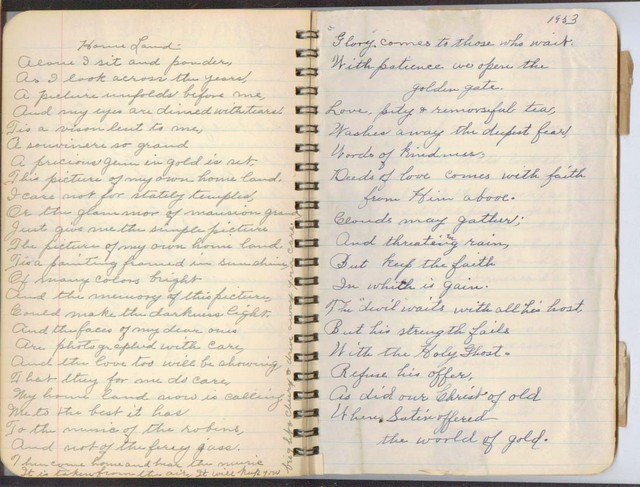 Home Land:
Alone I sit and ponder,
As I look across the years,
A picture unfolds before me,
And my eyes are dimed with tears
Tis a vison lent to me,
A souvinere so grand
A precious gem in gold is set,
This picture of my own home land.
I care not for stately temples,
Or the glammor of mansion grand
Just give me the simple picture
The picture of my own home land.
Tis a painting framed in sunshine
Of many colors bright
And the memory of this picture,
Could make the darkness light.
And the faces of my dear ones
Are photographed with care,
And the love too will be showing
That they for me do care,
My home land now is calling
Me to the best it has
To the music of the robins,
And not of the jass.
Then come home and hear the music
It is taken from the air It will keep you
away from care.
1953
"Glory comes to those who wait.
With patience we open the
golden gate.
Love, pity & remorsful tear,
Washes away the deepest fear,
Words of kindness,
Deeds of love comes with faith
from Him above.
Clouds may gather;
And threating rain,
But keep the faith
In which is gain.
The "devil waits with all his host,
But his strength fails
With the Holy Ghost-
Refuse his offer,
As did our Christ of old
When Satin offered
the world of gold.